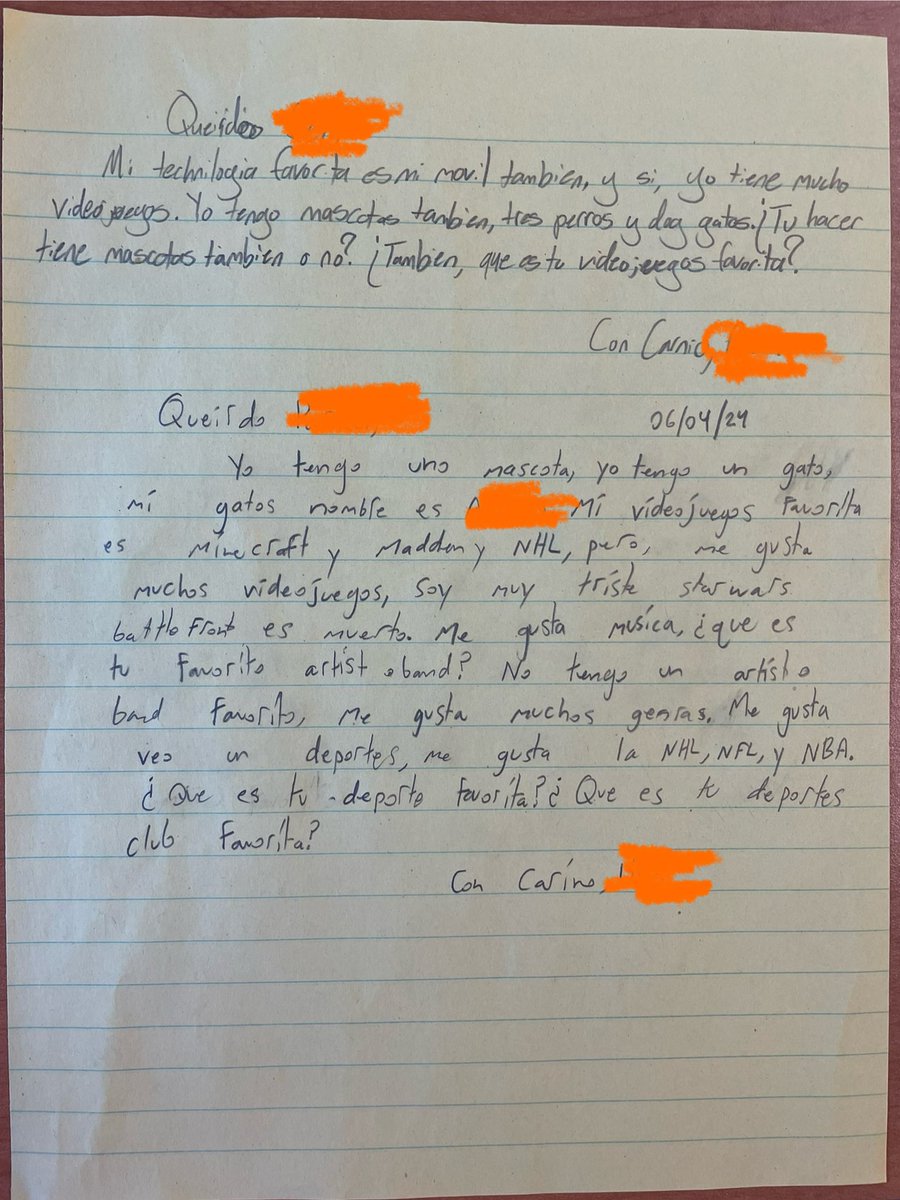 Queirdo
Mi technilogia favorita es mi movil tambien, y si, yo tiene mucho
videojuegos. Yo tengo mascotas tanbien, tres perros y dog gatos. ¡Tu hacer
tiene mascotas tambien o no? ¡Tambien, que es tu videojuegos favorita?
Con Carnio,
Queirdo
06/04/24
Yo tengo uno mascota, yo tengo un gato,
mi gatos nombre es Mi videojuegos favorita
es Minecraft y Madden y NHL, pero, me gusta
muchos videojuegos, soy muy triste starwars
battlefront es muerto. Me gusta musica, ¿que es
tu favorito artist o band? No tengo un artist o
band favorito, me gusta muchos genras. Me gusta
veo un deportes, me gusta la NHL, NFL, y NBA.
¿Que es tu deporte favorita? ¿Que es tu deportes
club favorita?
Con Carino,